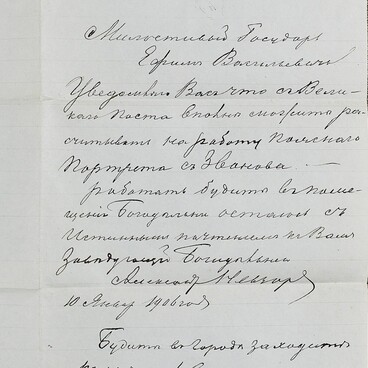 Милостивый Государь
Ефимъ Васильевичъ
Уведомляю Васъ что съ Вели-
каго Поста Вполне можите ра-
считывать на работу Пояснаго
Портрета съ
работать будите въ поме-
щении Богадельни остаюсь съ
Истиннымъ почтениемъ къ Вамъ
Заведующий Богадельни
10 Январ 1906 год
Будите въ городе заходите